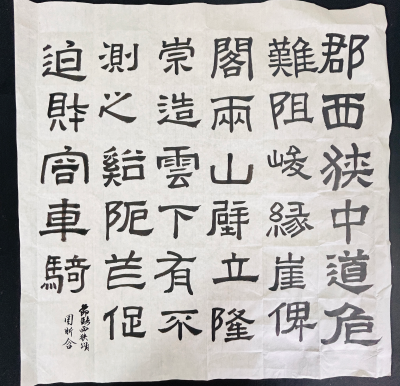 郡西狭中道危
難阻峻縁崖俾
閣兩山壁立隆
崇造雲下有不
測之谿阨芒促
迫財容車騎
節臨西狭頌
周昕合